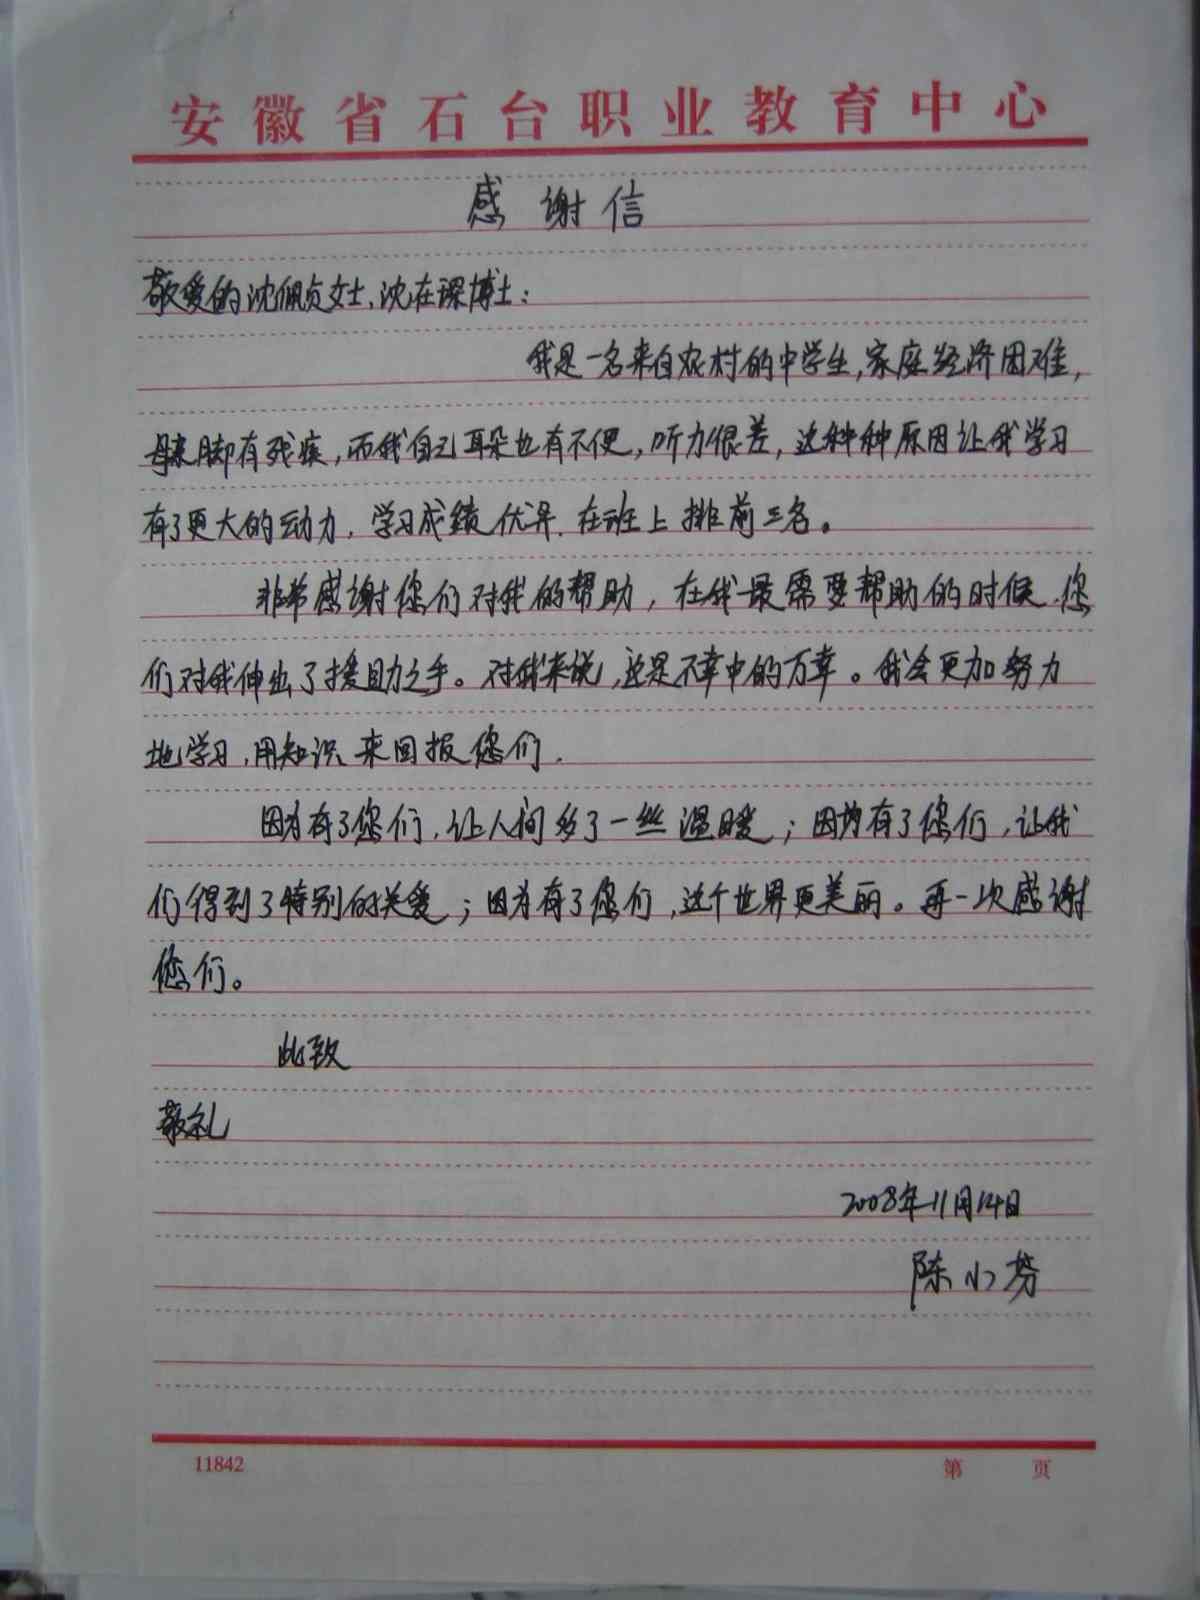 安徽省石台职业教育中心
感谢信
敬爱的沈佩贞女士,沈在课博士:
我是一名来自农村的中学生,家庭经济困难,
母亲脚有残疾,而我自己耳朵也有不便,听力很差,这种种原因让我学习
有了更大的动力,学习成绩优异.在班上排前三名。
非常感谢您们对我的帮助,在我最需要帮助的时候.您
们对我伸出了援助之手。对我来说,这是不幸中的万幸。我会更加努力
地学习,用知识来回报您们.
因为有了您们,让人间多了一丝温暖;因为有了您们,让我
们得到了特别的关爱;因为有了您们,这个世界更美丽。再一次感谢
您们。
此致
敬礼
2008年11月14日
陈小芬
11842
第 页